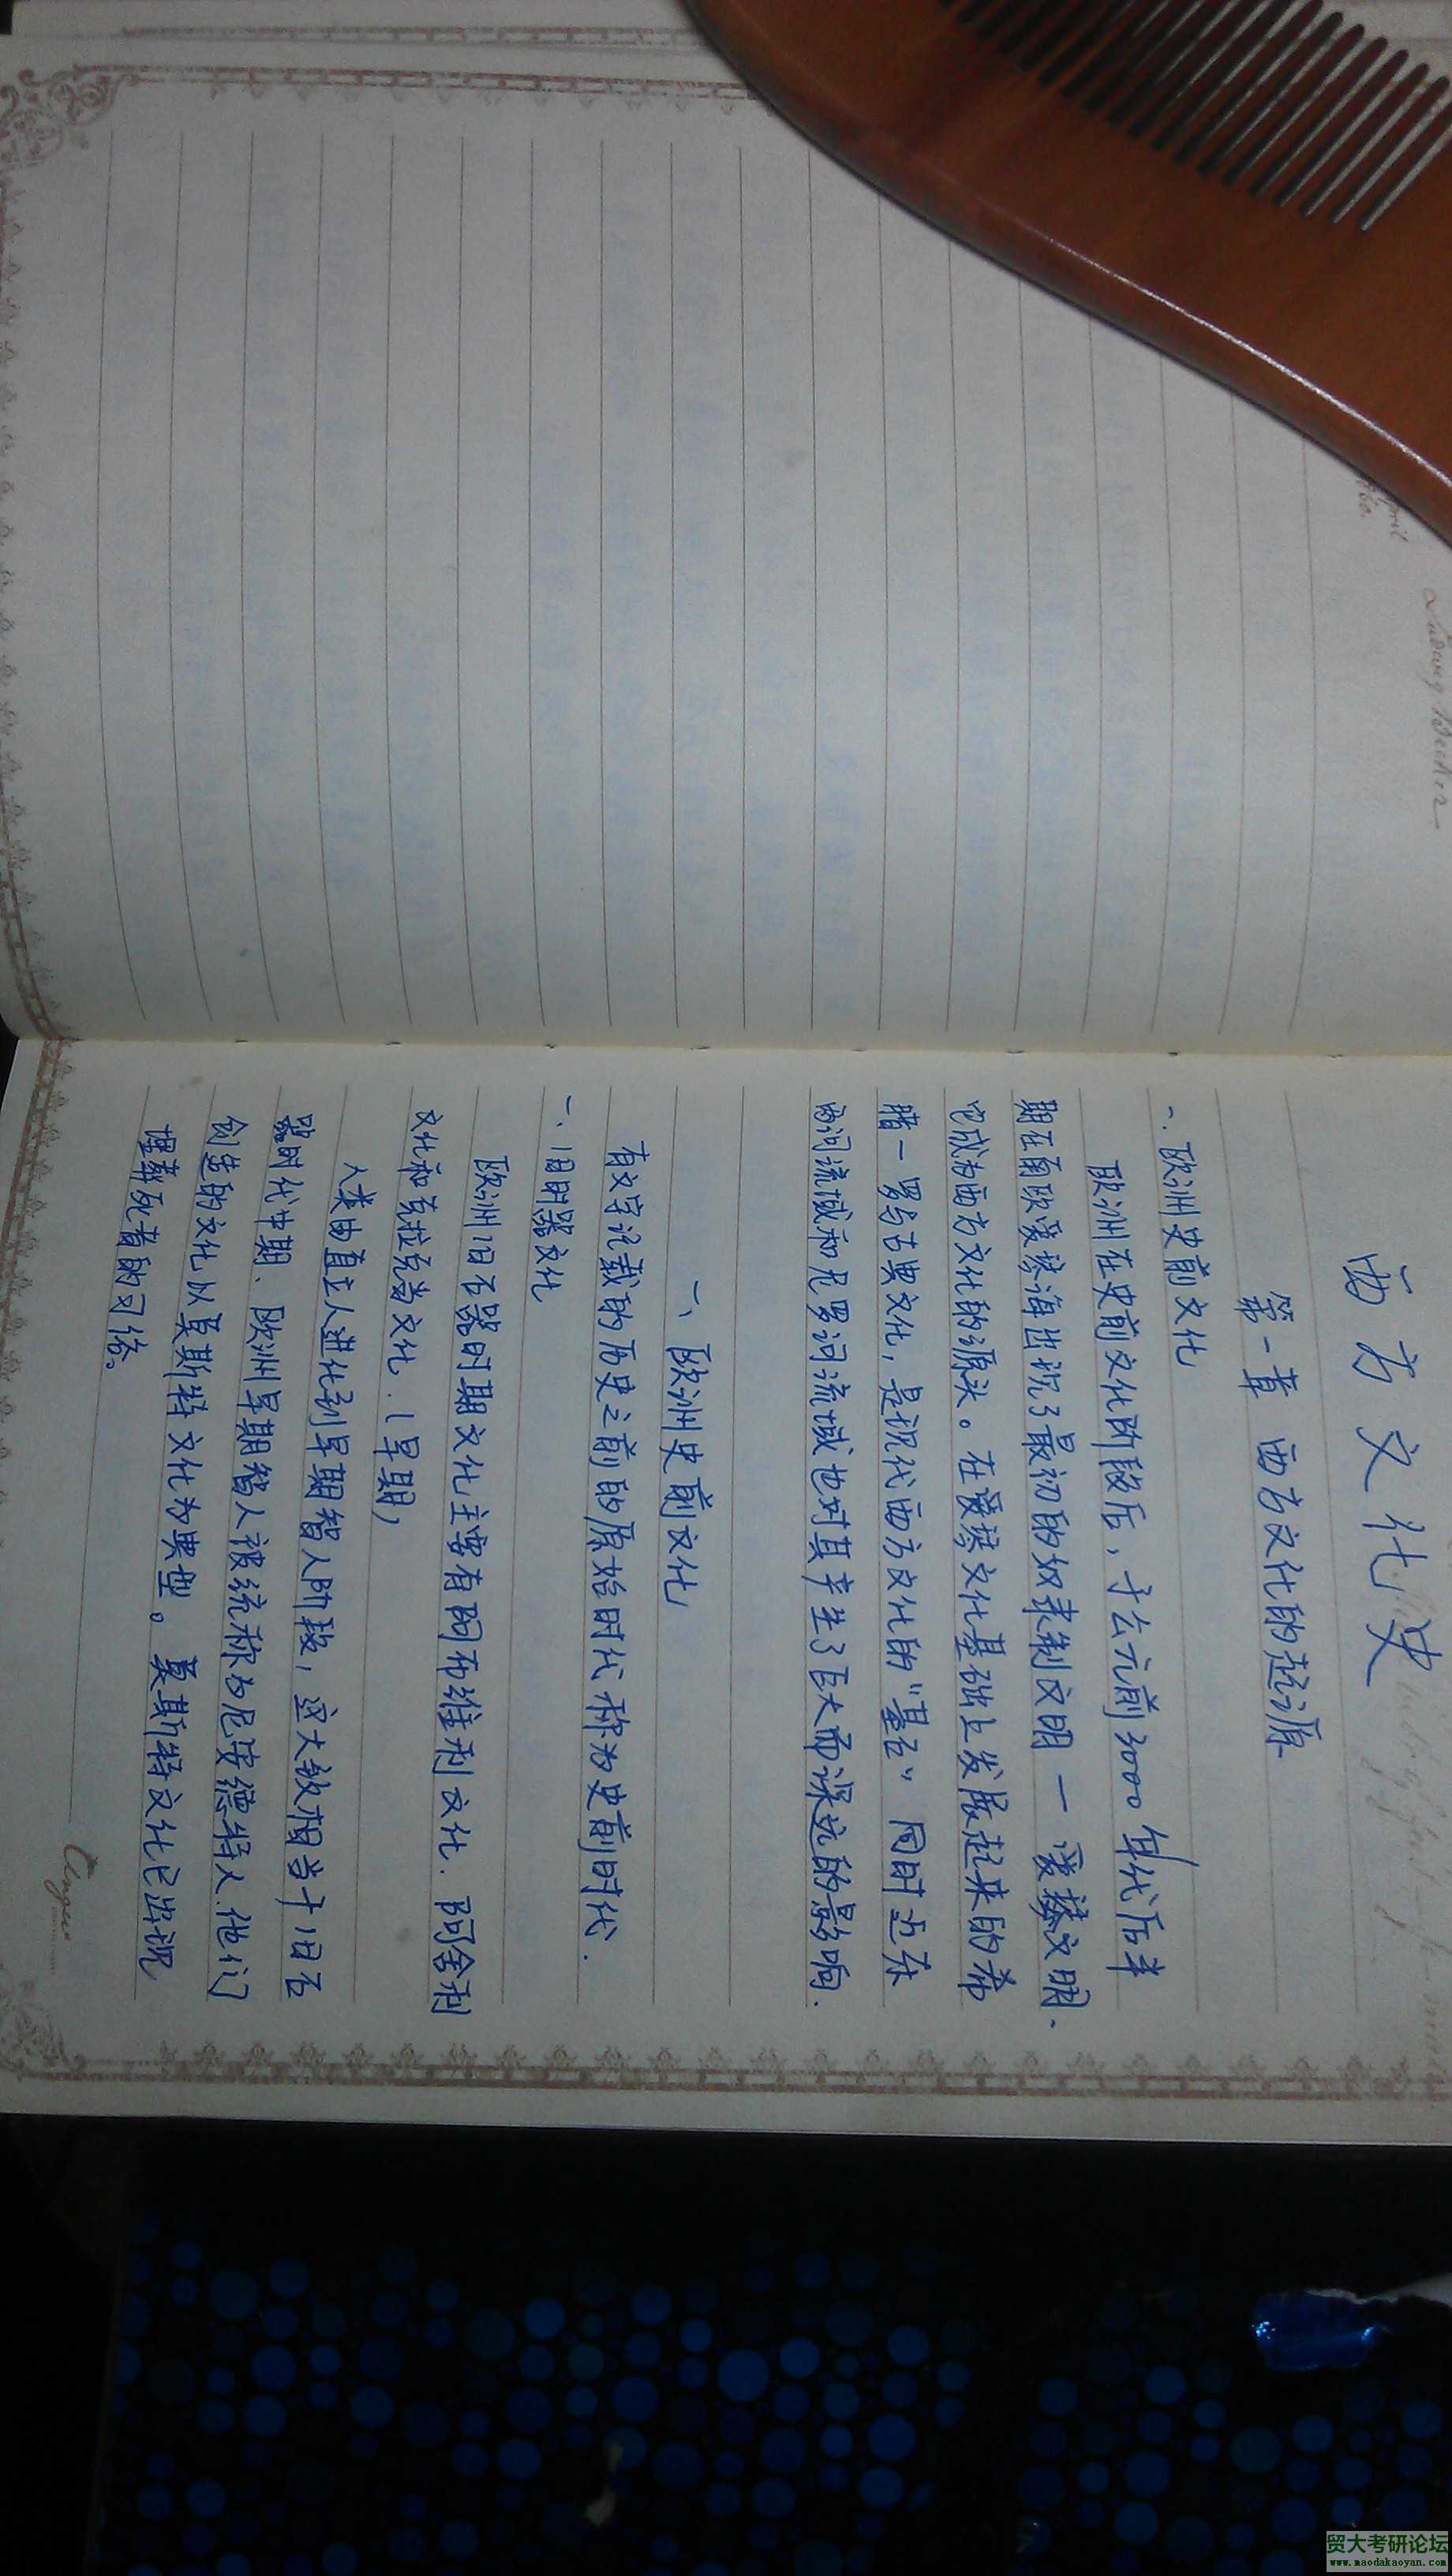 西方文化史
第一章 西方文化的起源
一、欧洲史前文化
欧洲在史前文化阶段后，于公元前3000年代后半
期在南欧爱琴海出现了最初的奴隶制文明一爱琴文明.
它成为西方文化的源头。在爱琴文化基础上发展起来的希
腊一罗马古典文化，是现代西方文化的“基石” 同时近东
两河流域和尼罗河流域也对其产生了巨大而深远的影响.
一、欧洲史前文化
有文字记载的历史之前的原始时代称为史前时代.
一、旧时器文化
欧洲旧石器时期文化主要有阿布维利文化. 阿舍利
文化和克拉克当文化.(早期)
人类由直立人进化到早期智人阶段，这大致相当于旧石
器时代中期、欧洲早期智人被统称为尼安德特人.他们
创造的文化以莫斯特文化为典型。莫斯特文化已出现
埋葬死者的习俗。
贸大考研论坛
www.maodakaoyan.com